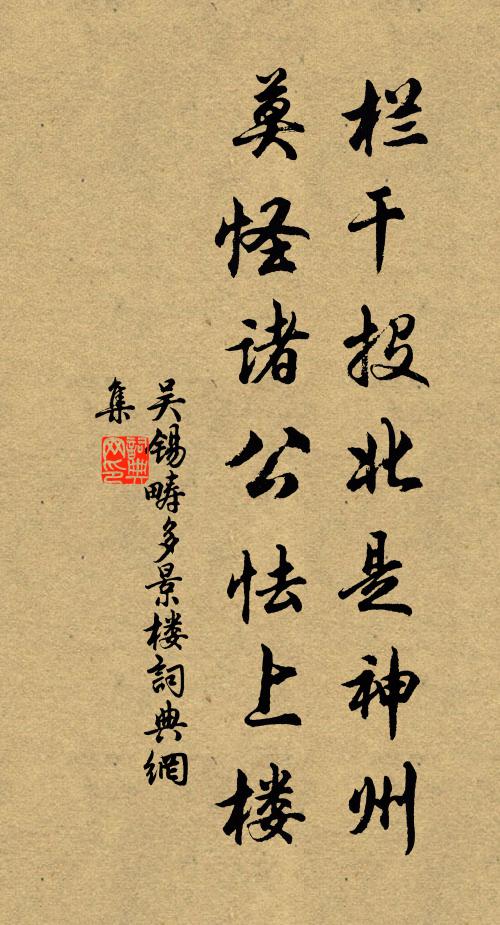 栏干投北是神州
莫怪诸公怯上楼
吴锡畴多景楼詞典網
集
詞典
网印